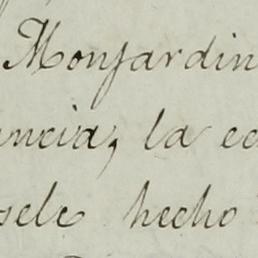 Monjardin
encia, la ec
sele hecho